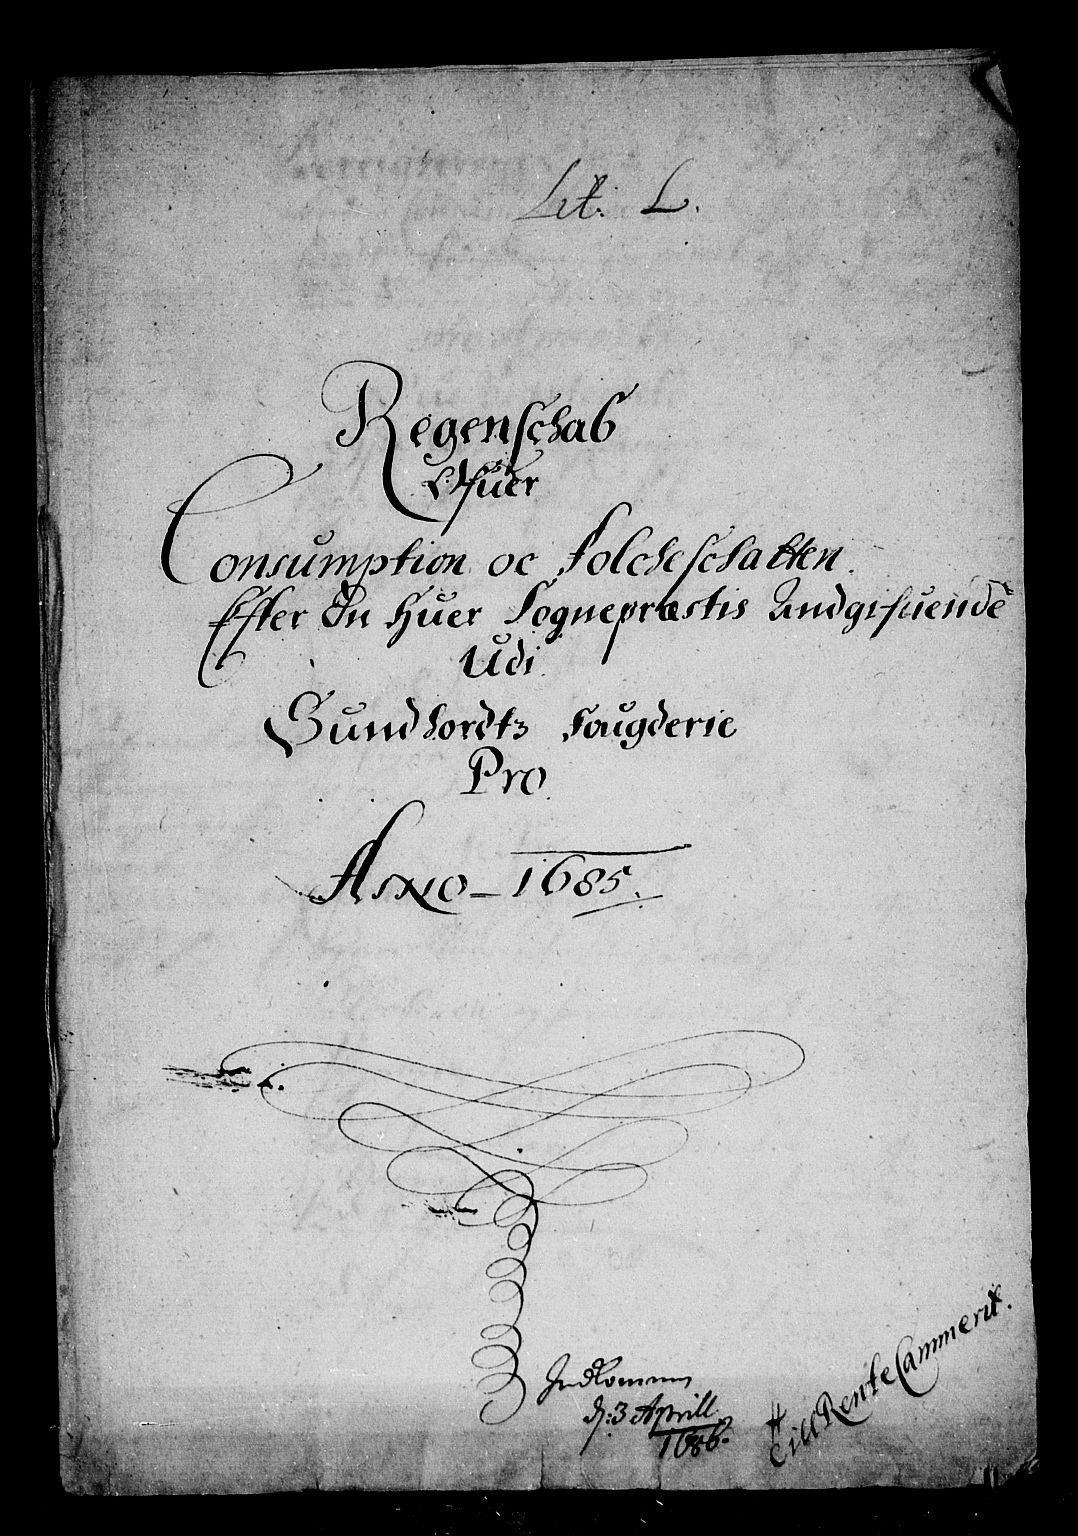 Lit. L.
Regenschab
Ofuer
Consumption oc Folcheschatten.
Efter En huer Sognepræstis Andgifuende
Udi
Sundhordtz Fougderie
Pro
Anno 1685.
Indkommen
d: 3 Aprill
1686.
Till Rente Cammerit.